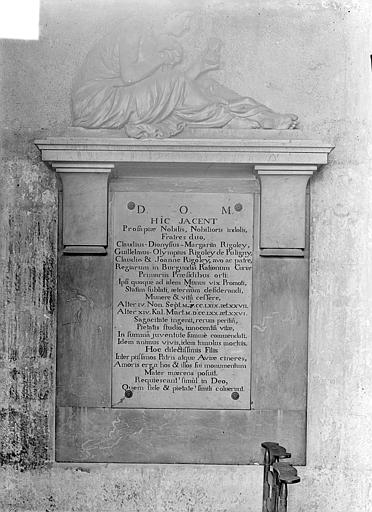 D. O. M.
HIC JACENT
Prosapiæ Nobilis, Nobilioris indolis,
Fratres duo,
Claudius-Dionysius-Margarita Rigoley,
Guillelmus-Olympius Rigoley de Puligny,
Claudio & Joanne Rigoley, avo ac patre,
Regiarum in Burgundia Rationum Curiæ
Primariis Præsidibus orti.
Ipsi quoque ad idem Munus vix Promoti,
Statim sublati, æternum desiderandi,
Munere & vitâ cessere,
Alter IV. Non. Sept. M.DCC.LXIX. æt. XXVII.
Alter XIV. Kal. Mart. M.DCC.LXX. æt. XXVI.
Sagacitate ingenii, rerum peritiâ,
Pietatis studio, innocentiâ vitæ,
In summâ juventute summè commendati.
Idem animus vivis, idem tumulus mortuis.
Hoc dilectissimis Filiis
Inter piissimos Patris atque Aviæ cineres,
Amoris erga hos & illos sui monumentum
Mater mœrens posuit.
Requiescant simul in Deo,
Quem fide & pietate simul coluerunt.